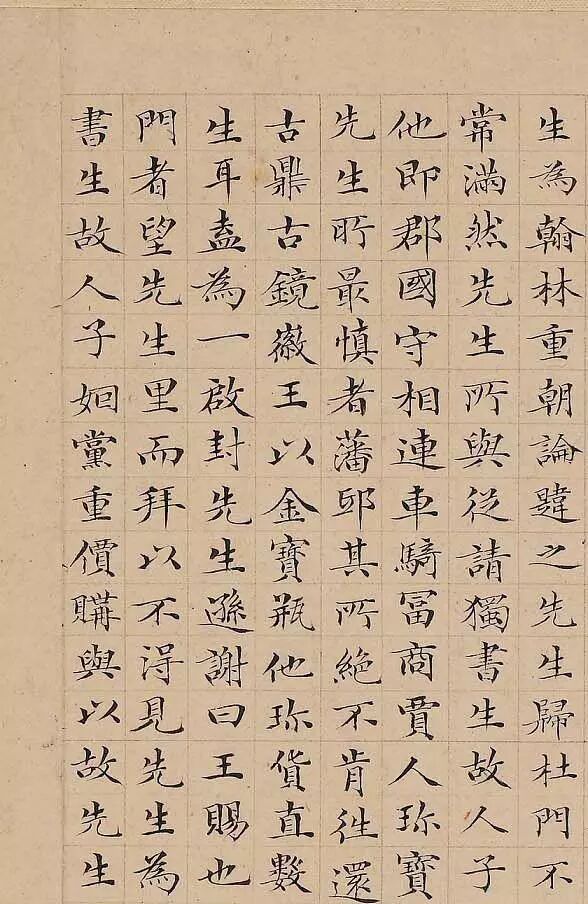 生為翰林重朝論韙之先生歸杜門不
常滿然先生所與從請獨書生故人子
他即郡國守相連車騎冨商賈人珎寶
先生所最慎者藩邸其所絶不肯徃還
古鼎古鏡徽王以金寶瓶他珎貨直數
生耳盍為一啟封先生遜謝曰王賜也
門者望先生里而拜以不得見先生為
書生故人子姻黨重價購與以故先生